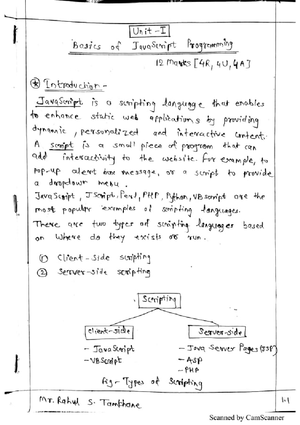 Unit-I
Basics of JavaScript Programming
12 Marks [4R, 4U, 4A]
Introduction -
JavaScript is a scripting language that enables
to enhance static web applications by providing
dynamic, personalized and interactive content.
A script is a small piece of program that can
add interactivity to the website. For example, to
pop-up alert box message, or a script to provide
a dropdown menu.
JavaScript, JScript, Perl, PHP, Python, VBscript are the
most popular examples of scripting languages.
There are two types of scripting languages based
on where do they exists or run.
① Client-side scripting
② Server-side scripting
Scripting
Client-side
Server-side
- JavaScript
- Java Server Pages (JSP)
- VBScript
- ASP
- PHP
Fig - Types of Scripting
Mr. Rahul S. Tamkhane
1-1
Scanned by CamScanner